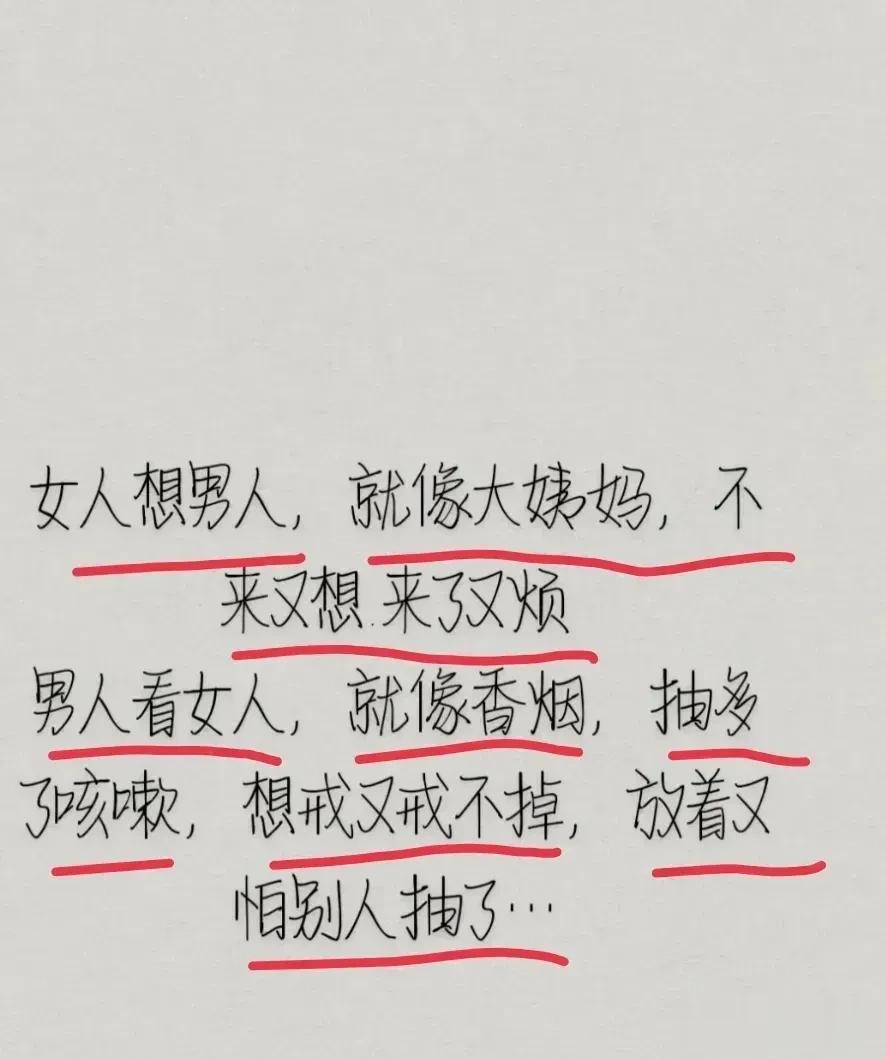 女人想男人，就像大姨妈，不
来又想.来了又烦
男人看女人，就像香烟，抽多
了咳嗽，想戒又戒不掉，放着又
怕别人抽了…